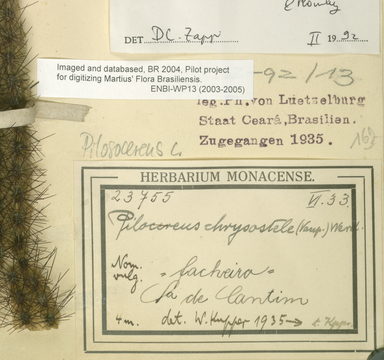 DET. D.C. Zappi II 1992
Imaged and databased, BR 2004, Pilot project
for digitizing Martius' Flora Brasiliensis.
ENBI-WP13 (2003-2005)
-92/13
leg. Ph. von Luetzelburg
Staat Ceará, Brasilien.
Zugegangen 1935.
Pilosocereus c.
HERBARIUM MONACENSE.
23755 VI.33
Pilocereus chrysostele (Vaup.) Werd.
Nom. vulg. "facheiro"
Sa de Cantim
4 m. det. W. Kupper 1935 →